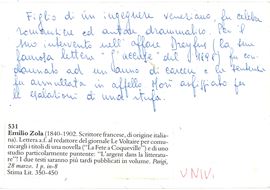 Figlio di un ingegnere veneziano, fu celebre
romanziere ed autore drammatico. Per il
suo intervento nell'affare Dreyfus (la sua
famosa lettera "J'accuse" del 1898) fu con-
dannato ad un anno di carcere e
fu ammazzato in affetto Mori asfissiato per
le esalazioni di una stufa.
531
Emilio Zola (1840-1902. Scrittore francese, di origine italia-
na). Lettera a.f. al redattore del giornale Le Voltaire per comu-
nicargli i titoli di una novella ("La Fete a Coqueville") e di uno
studio particolarmente puntente: "L'argent dans la littérature"!
I due testi saranno più tardi pubblicati in volume. Parigi,
28 marzo. 1 p. in-8
Stima Lit. 350-450
UNIV.